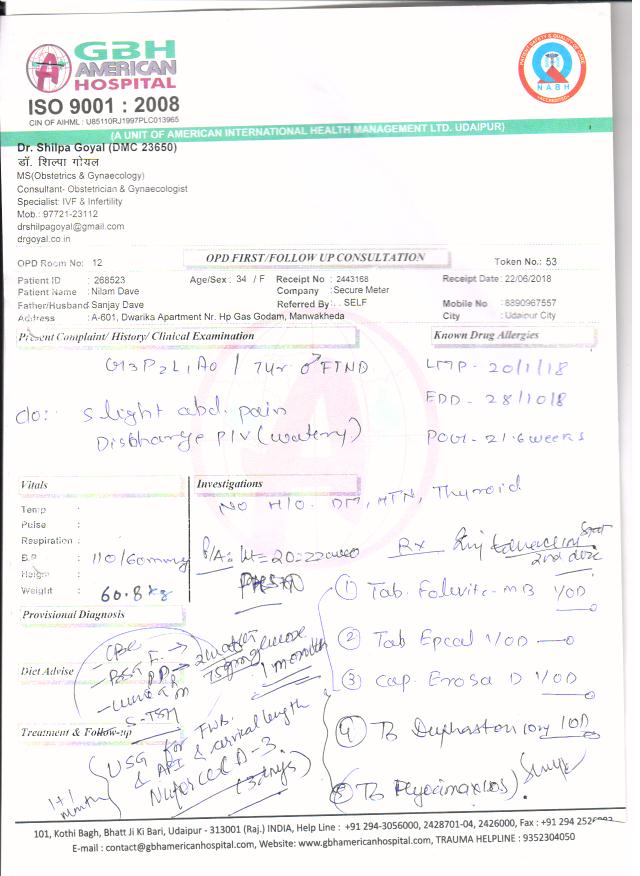 GBH
AMERICAN
HOSPITAL
ISO 9001 : 2008
CIN OF AIHML : U85110RJ1997PLC013965
PATIENT SAFETY & QUALITY OF CARE
NABH
ACCREDITED
(A UNIT OF AMERICAN INTERNATIONAL HEALTH MANAGEMENT LTD. UDAIPUR)
Dr. Shilpa Goyal (DMC 23650)
डॉ. शिल्पा गोयल
MS(Obstetrics & Gynaecology)
Consultant- Obstetrician & Gynaecologist
Specialist: IVF & Infertility
Mob.: 97721-23112
drshilpagoyal@gmail.com
drgoyal.co.in
OPD FIRST/FOLLOW UP CONSULTATION
OPD Room No: 12 Token No.: 53
Patient ID : 268523 Age/Sex : 34 / F Receipt No : 2443168 Receipt Date : 22/06/2018
Patient Name : Nilam Dave Company : Secure Meter
Father/Husband Sanjay Dave Referred By : . SELF Mobile No : 8890967557
Address : A-601, Dwarika Apartment Nr. Hp Gas Godam, Manwakheda City : Udaipur City
Present Complaint/ History/ Clinical Examination Known Drug Allergies
G3P2L1A0 / 7yr ♂ FTND LMP - 20/1/18
EDD - 28/10/8
c/o: slight abd. pain
Discharge P/V (watery) POG - 21.6 weeks
Vitals Investigations
No H/O. DM, HTN, Thyroid
Temp :
Pulse :
Respiration :
B.P : 110/60mmHg P/A: Ht = 20-22 week Rx Inj 2nd dose
Height :
Weight : 60.8 kg
① Tab. Folvite-MB 1/OD
Provisional Diagnosis
② Tab Epcal 1/OD
- CBC
Diet Advise 75gm glucose
1 month
③ Cap. Erosa D 1/OD
- S-TSH
Treatment & Follow-up
USG for FWB
& AFI & cervical length
④ Tb Duphaston 10mg 1OD
(3 days)
1+1 month
⑤ Tb
101, Kothi Bagh, Bhatt Ji Ki Bari, Udaipur - 313001 (Raj.) INDIA, Help Line : +91 294-3056000, 2428701-04, 2426000, Fax : +91 294
E-mail : contact@gbhamericanhospital.com, Website: www.gbhamericanhospital.com, TRAUMA HELPLINE : 9352304050